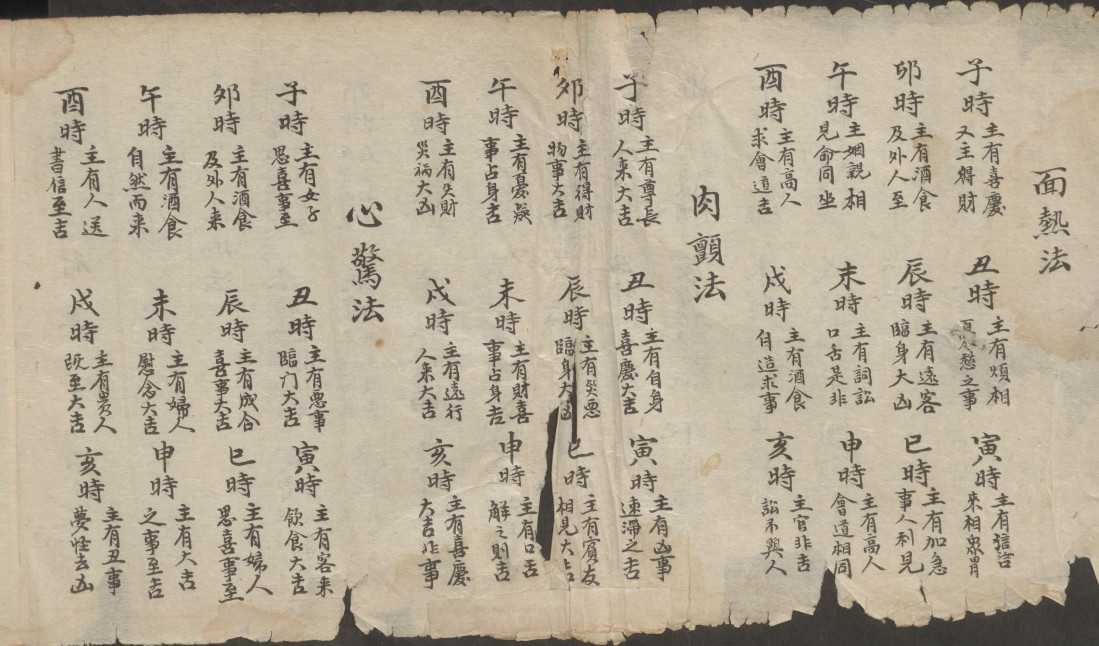 面熱法
子時 主有喜慶 又主得財 丑時 主有煩相 愁之事 寅時 主有信
來相
卯時 主有酒食 及外人至 辰時 主有遠客 臨身大凶 巳時 主有加急 事人利見
午時 主姻親相 見命同坐 未時 主有詞訟 口舌是非 申時 主有高人 會道相同
酉時 主有高人 求會道吉 戌時 主有酒食 自造求事 亥時 主官非吉 訟不興人
肉顫法
子時 主有尊長 人来大吉 丑時 主有自身 喜慶大吉 寅時 主有凶事 速滯之吉
夘時 主有得財 物事大吉 辰時 主有災惡 臨身大凶 巳時 主有賓友 相見大吉
午時 主有憂疑 事占身吉 未時 主有財喜 事占身吉 申時 主有口舌 解之則吉
酉時 主有失財 災禍大凶 戌時 主有遠行 人来大吉 亥時 主有喜慶 大吉非事
心驚法
子時 主有女子 思喜事至 丑時 主有惡事 臨门大吉 寅時 主有客来 飲食大吉
夘時 主有酒食 及外人来 辰時 主有成合 喜事大吉 巳時 主有婦人 思喜事至
午時 主有酒食 自然而来 未時 主有婦人 慰念大吉 申時 主有大吉 之事至吉
酉時 主有人送 書信至吉 戌時 主有貴人 既至大吉 亥時 主有丑事 夢怪去凶